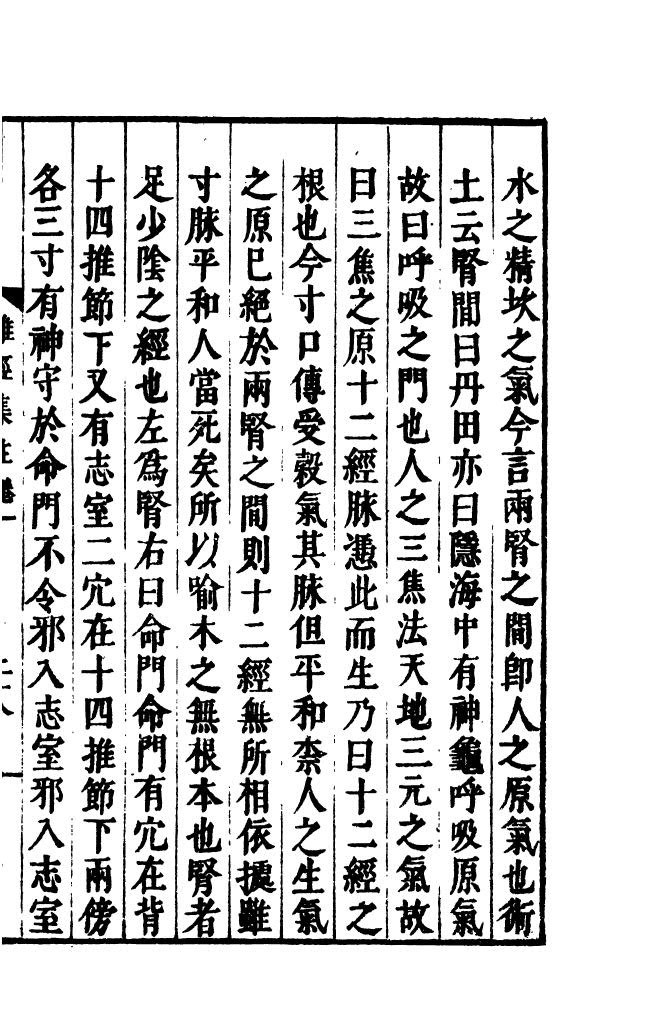 水之精坎之氣今言兩腎之間卽人之原氣也術
士云腎間曰丹田亦曰隱海中有神龜呼吸原氣
故曰呼吸之門也人之三焦法天地三元之氣故
曰三焦之原十二經脉憑此而生乃曰十二經之
根也今寸口傳受穀氣其脉但平和柰人之生氣
之原已絕於兩腎之間則十二經無所相依據雖
寸脉平和人當死矣所以喻木之無根本也腎者
足少隂之經也左爲腎右曰命門命門有穴在背
十四推節下又有志室二穴在十四推節下兩傍
各三寸有神守於命門不令邪入志室邪入志室
難經集注卷一
二十八